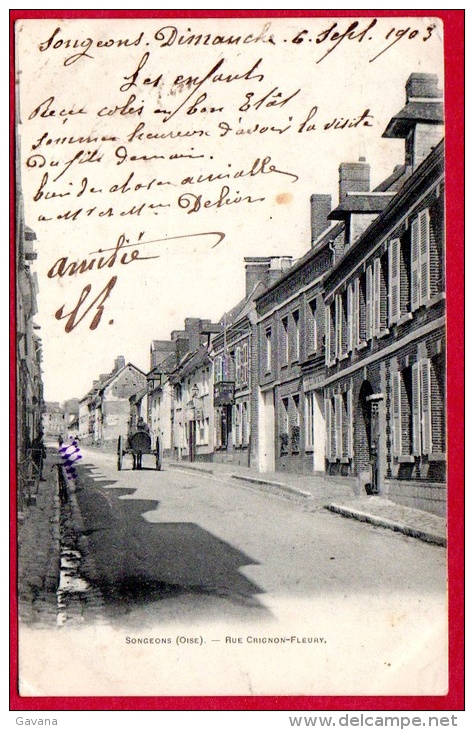 Songeons. Dimanche. 6. Sept. 1903
Les enfants
Recu colis en bon Etât
sommes heureux d'avoir la visite
du fils demain.
bien des choses amicales
a Mr et Mme
Amitié
Songeons (Oise). — Rue Crignon-Fleury.
Gavana
www.delcampe.net